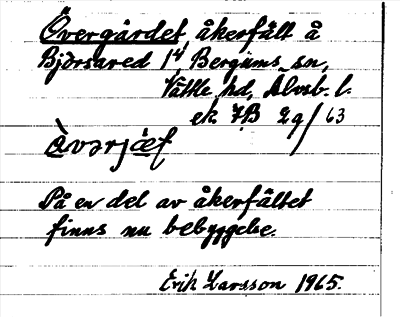 Övergärdet åkerfält å
Björsared 1⁴ Bergums sn,
Vättle hd, Älvsb. l.
ek 7B 2g/63
På en del av åkerfältet
finns nu bebyggelse.
Erik Larsson 1965.